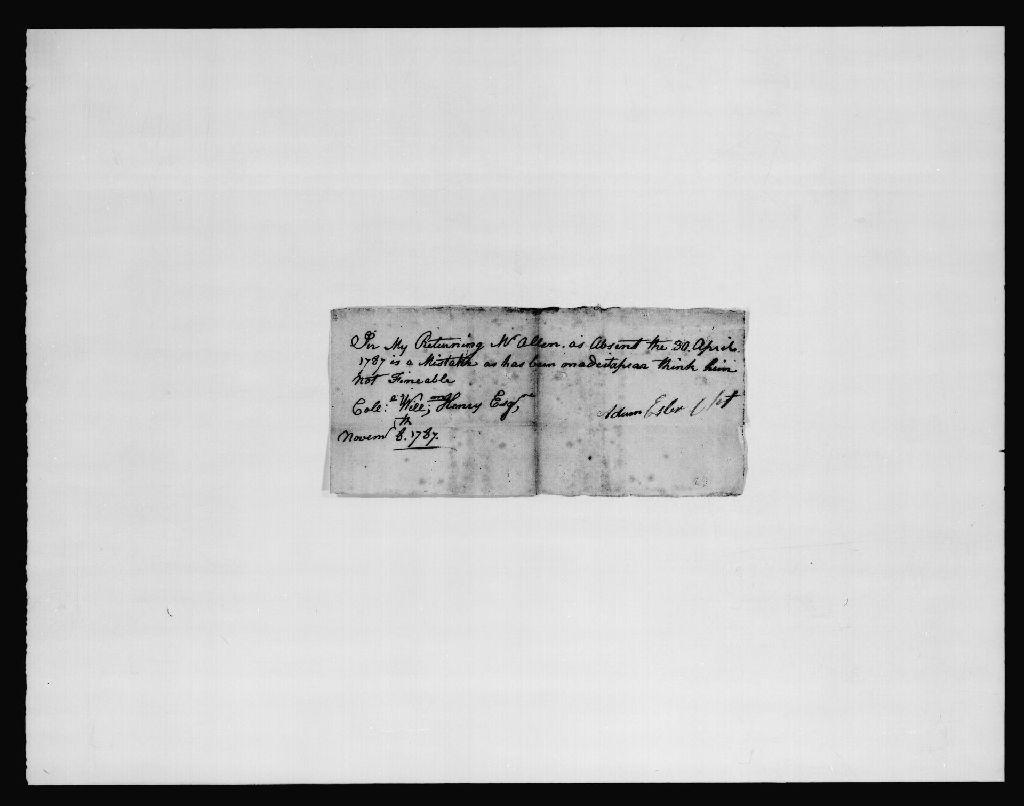 Sir My Returning Mr Allen. as Absent the 30. April.
1787 is a Mistake as has been on as think him
not Fineable
Cole: Will;m Henry Esqr
Adam Esler
Novemr 8.th 1787.